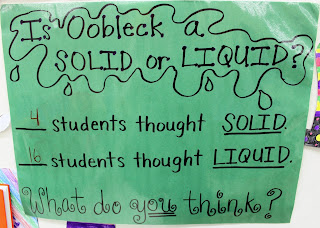 Is Oobleck a
SOLID or LIQUID?
4 students thought SOLID.
16 students thought LIQUID.
What do you think?